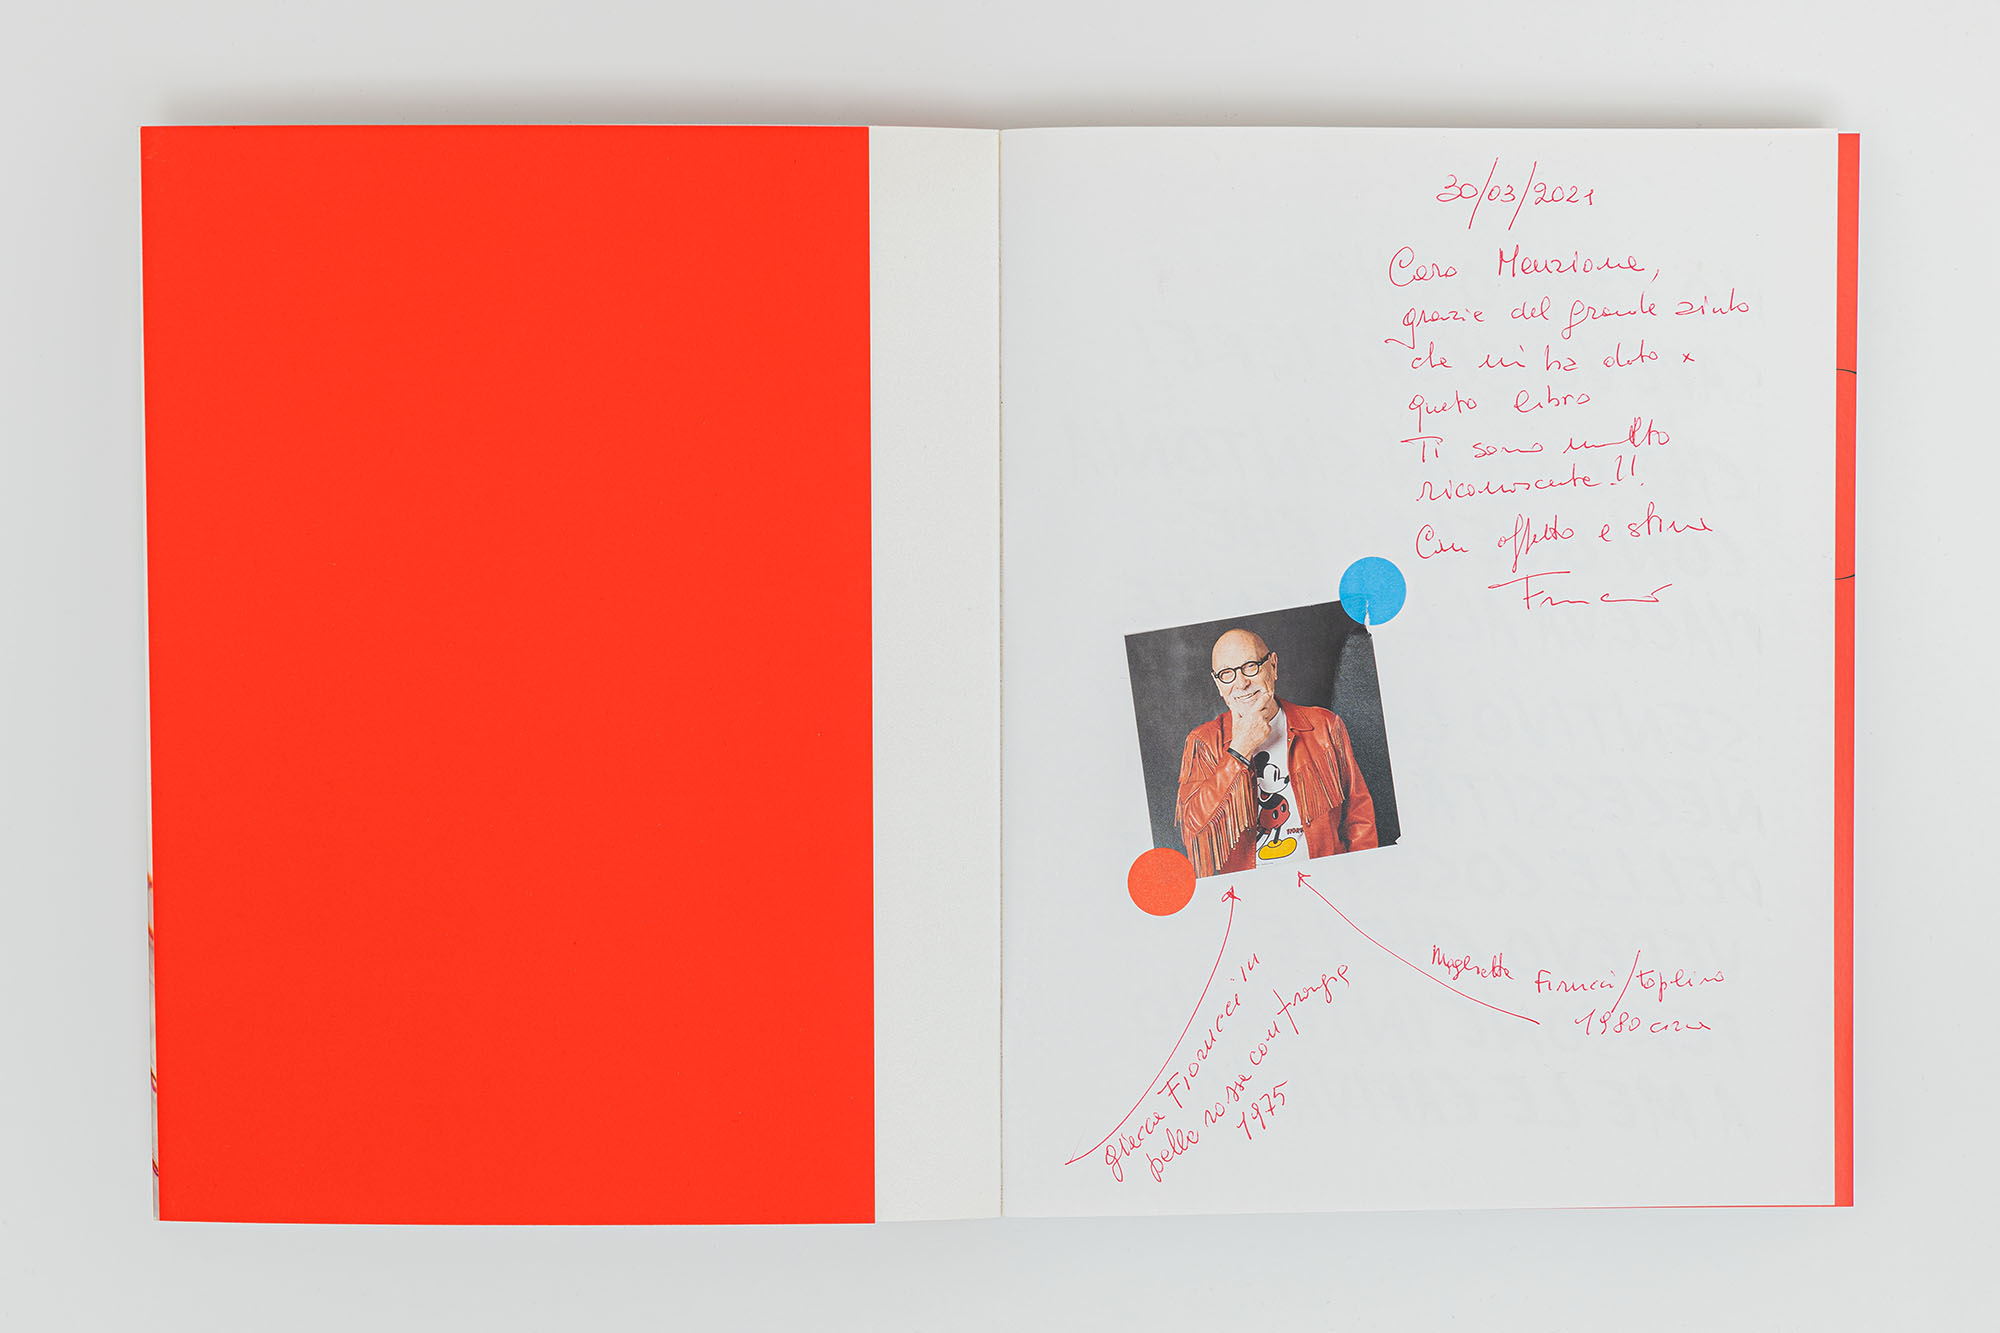 30/03/2021
Caro Menzione,
grazie del grande aiuto
che mi ha dato x
questo libro
Ti sono molto
riconoscente!!
Con affetto e stima
giacca Fiorucci in
pelle rossa con frangia
1975
Maglietta Fiorucci/topolino
1980 circa